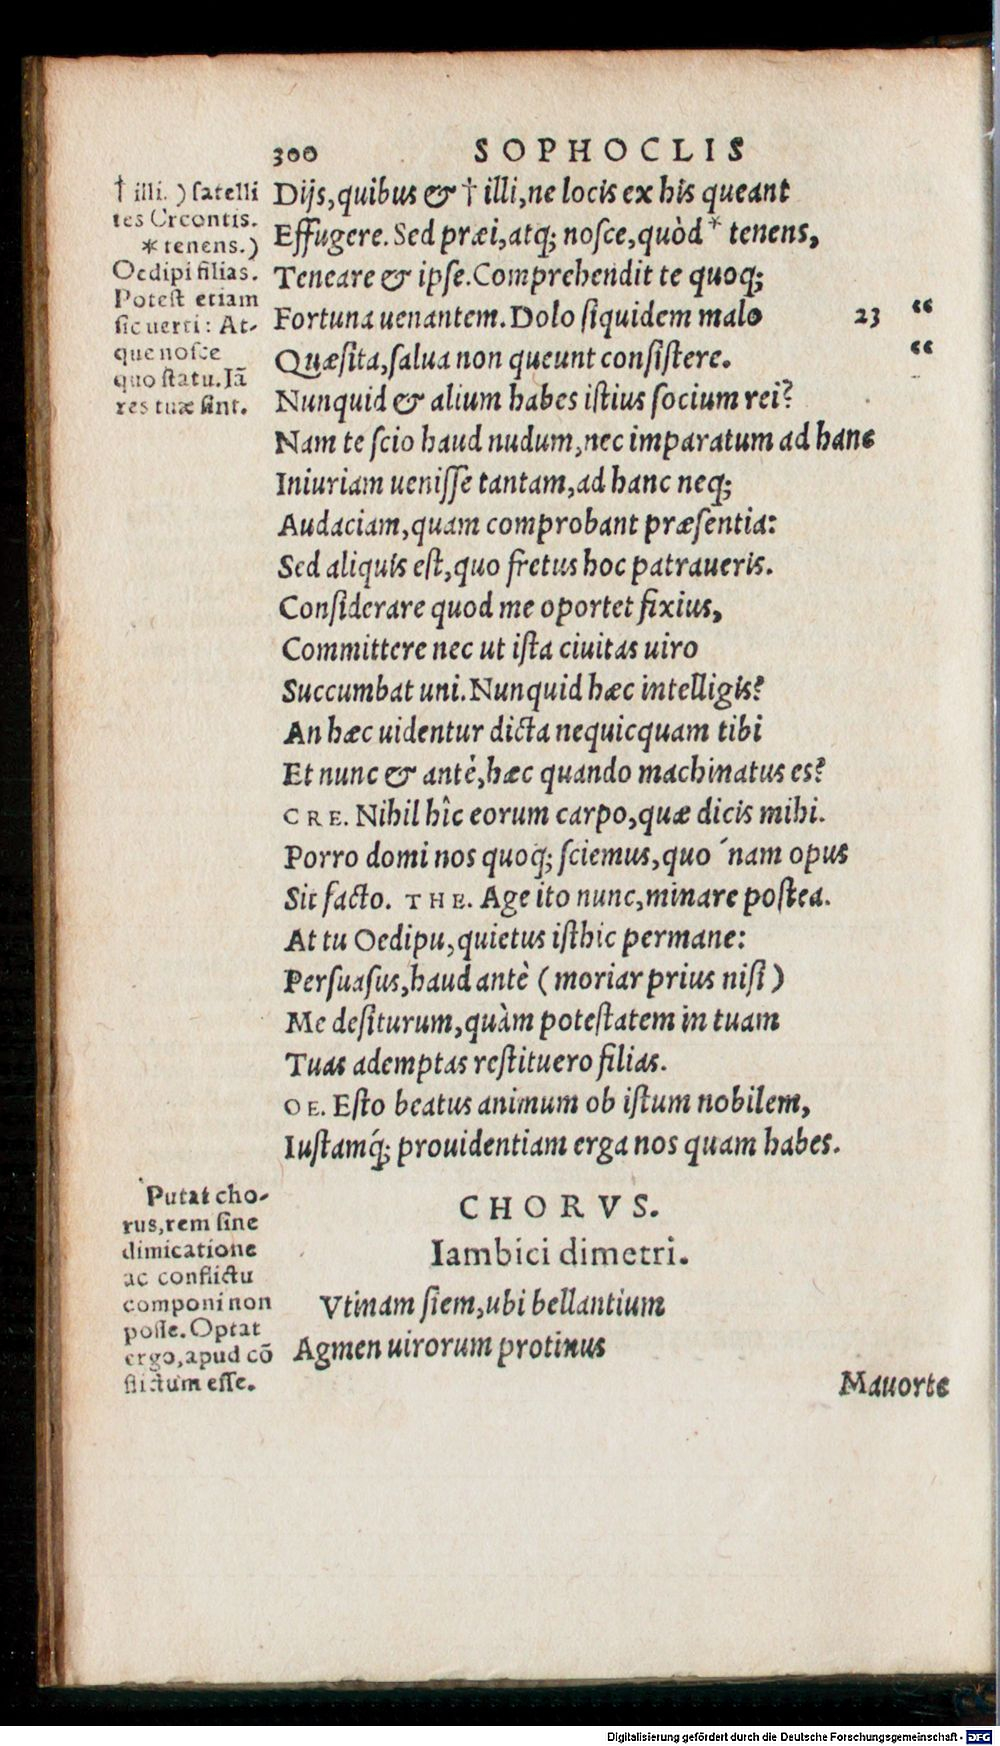 300 SOPHOCLIS
† illi. ) satelli
tes Creontis.
* tenens.)
Oedipi filias.
Potest etiam
sic uerti: At-
que nosce
quo statu. Iā
res tuæ sint.
Dijs, quibus & † illi, ne locis ex his queant
Effugere. Sed præi, atq; nosce, quòd * tenens,
Teneare & ipse. Comprehendit te quoq;
Fortuna uenantem. Dolo siquidem malo 23 “
Quæsita, salua non queunt consistere. “
Nunquid & alium habes istius socium rei?
Nam te scio haud nudum, nec imparatum ad hanc
Iniuriam uenisse tantam, ad hanc neq;
Audaciam, quam comprobant præsentia:
Sed aliquis est, quo fretus hoc patraueris.
Considerare quod me oportet fixius,
Committere nec ut ista ciuitas uiro
Succumbat uni. Nunquid hæc intelligis?
An hæc uidentur dicta nequicquam tibi
Et nunc & antè, hæc quando machinatus es?
CRE. Nihil hîc eorum carpo, quæ dicis mihi.
Porro domi nos quoq; sciemus, quo ́nam opus
Sit facto. THE. Age ito nunc, minare postea.
At tu Oedipu, quietus isthic permane:
Persuasus, haud antè ( moriar prius nisi )
Me desiturum, quàm potestatem in tuam
Tuas ademptas restituero filias.
OE. Esto beatus animum ob istum nobilem,
Iustamq́; prouidentiam erga nos quam habes.
Putat cho-
rus, rem sine
dimicatione
ac conflictu
componi non
posse. Optat
ergo, apud cō
flictum esse.
CHORVS.
Iambici dimetri.
Vtinam siem, ubi bellantium
Agmen uirorum protinus
Mauorte
Digitalisierung gefördert durch die Deutsche Forschungsgemeinschaft - DFG